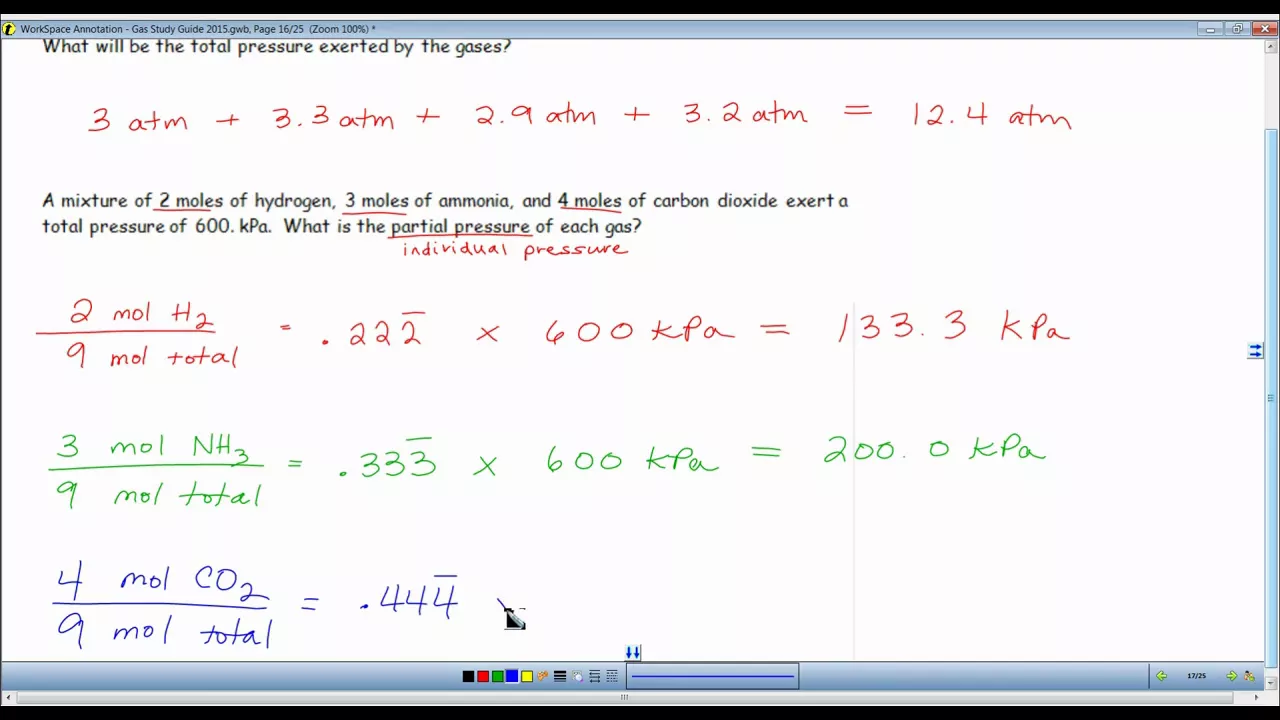 WorkSpace Annotation - Gas Study Guide 2015.gwb, Page 16/25 (Zoom 100%) *
What will be the total pressure exerted by the gases?
3 atm + 3.3 atm + 2.9 atm + 3.2 atm = 12.4 atm
A mixture of 2 moles of hydrogen, 3 moles of ammonia, and 4 moles of carbon dioxide exert a
total pressure of 600. kPa. What is the partial pressure of each gas?
individual pressure
2 mol H₂
9 mol total
= .222̅ x 600 kPa = 133.3 kPa
3 mol NH₃
9 mol total
= .333̅ x 600 kPa = 200.0 kPa
4 mol CO₂
9 mol total
= .444̅
17/25